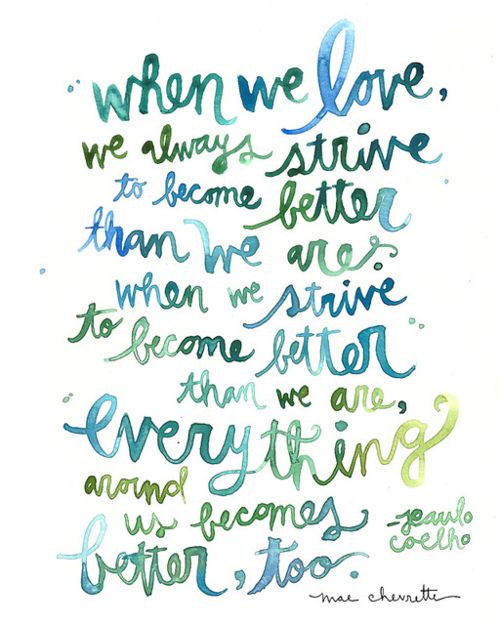 when we love,
we always strive
to become better
than we are.
when we strive
to become better
than we are,
everything
around
us becomes
better, too.
-paulo
coelho
mae chevrette